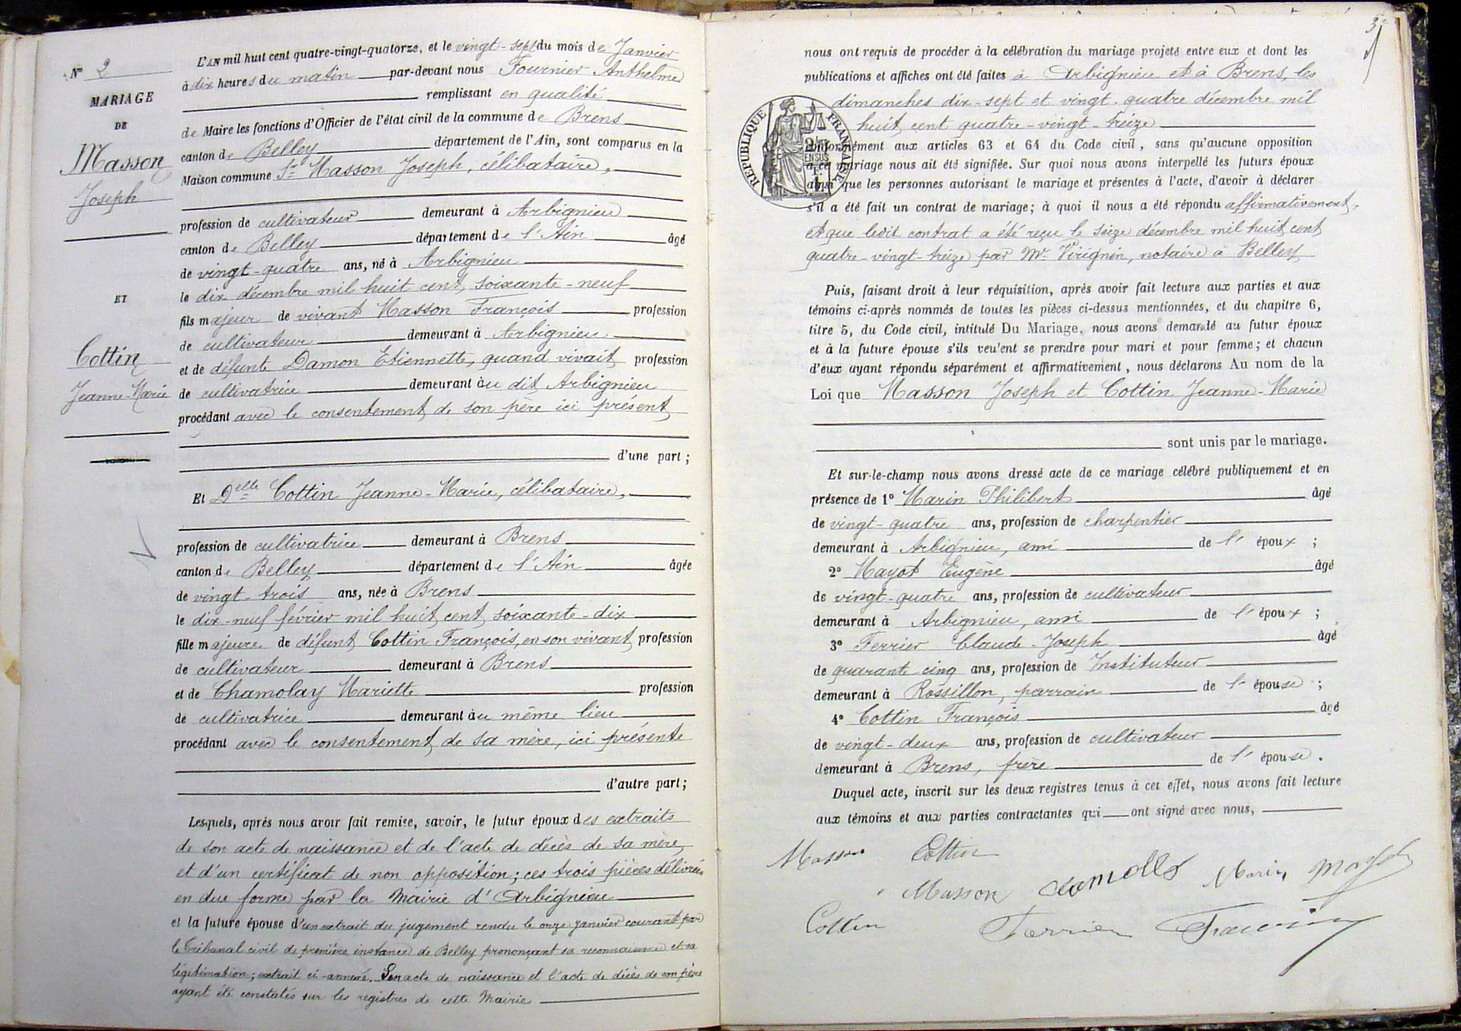 N° 2
MARIAGE
DE
Masson
Joseph
ET
Cottin
Jeanne-Marie
L'AN mil huit cent quatre-vingt-quatorze, et le vingt-sept du mois de Janvier
à dix heures du matin par-devant nous Fournier Anthelme
remplissant en qualité
de Maire les fonctions d'Officier de l'état civil de la commune de Brens
canton de Belley département de l'Ain, sont comparus en la
Maison commune Sr Masson Joseph, célibataire,
profession de cultivateur demeurant à Arbignieu
canton de Belley département de l'Ain âgé
de vingt-quatre ans, né à Arbignieu
le dix décembre mil huit cent soixante-neuf
fils majeur de vivant Masson François profession
de cultivateur demeurant à Arbignieu
et de défunte Damon Etiennette, quand vivait profession
de cultivatrice demeurant au dit Arbignieu
procédant avec le consentement de son père ici présent
d'une part ;
Et Delle Cottin Jeanne-Marie, célibataire,
profession de cultivatrice demeurant à Brens
canton de Belley département de l'Ain âgée
de vingt-trois ans, née à Brens
le dix-neuf février mil huit cent soixante-dix
fille majeure de défunt Cottin François, en son vivant profession
de cultivateur demeurant à Brens
et de Chamolay Mariette profession
de cultivatrice demeurant au même lieu
procédant avec le consentement de sa mère, ici présente
d'autre part ;
Lesquels, après nous avoir fait remise, savoir, le futur époux des extraits
de son acte de naissance et de l'acte de décès de sa mère,
et d'un certificat de non opposition ; ces trois pièces délivrées
en due forme par la Mairie d'Arbignieu
et la future épouse d'un extrait du jugement rendu le onze janvier courant par
le Tribunal civil de première instance de Belley prononçant sa reconnaissance et sa
légitimation ; extrait ci-annexé. Son acte de naissance et l'acte de décès de son père
ayant été constatés sur les registres de cette Mairie
3
nous ont requis de procéder à la célébration du mariage projeté entre eux et dont les
publications et affiches ont été faites à Arbignieu et à Brens, les
dimanches dix-sept et vingt-quatre décembre mil
huit cent quatre-vingt-treize
conformément aux articles 63 et 64 du Code civil, sans qu'aucune opposition
à ce mariage nous ait été signifiée. Sur quoi nous avons interpellé les futurs époux
ainsi que les personnes autorisant le mariage et présentes à l'acte, d'avoir à déclarer
s'il a été fait un contrat de mariage ; à quoi il nous a été répondu affirmativement,
et que ledit contrat a été reçu le seize décembre mil huit cent
quatre-vingt-treize par Mr Virignin, notaire à Belley
RÉPUBLIQUE FRANÇAISE
Puis, faisant droit à leur réquisition, après avoir fait lecture aux parties et aux
témoins ci-après nommés de toutes les pièces ci-dessus mentionnées, et du chapitre 6,
titre 5, du Code civil, intitulé Du Mariage, nous avons demandé au futur époux
et à la future épouse s'ils veulent se prendre pour mari et pour femme ; et chacun
d'eux ayant répondu séparément et affirmativement, nous déclarons Au nom de la
Loi que Masson Joseph et Cottin Jeanne-Marie
sont unis par le mariage.
Et sur-le-champ nous avons dressé acte de ce mariage célébré publiquement et en
présence de 1° Marin Philibert âgé
de vingt-quatre ans, profession de charpentier
demeurant à Arbignieu, ami de l'époux ;
2° Mayot Eugène âgé
de vingt-quatre ans, profession de cultivateur
demeurant à Arbignieu, ami de l'époux ;
3° Ferrier Claude-Joseph âgé
de quarante cinq ans, profession de Instituteur
demeurant à Rossillon, parrain de l'épouse ;
4° Cottin François âgé
de vingt-deux ans, profession de cultivateur
demeurant à Brens, frère de l'épouse.
Duquel acte, inscrit sur les deux registres tenus à cet effet, nous avons fait lecture
aux témoins et aux parties contractantes qui ont signé avec nous,
Masson Cottin
Masson Marin Mayot
Cottin Ferrier